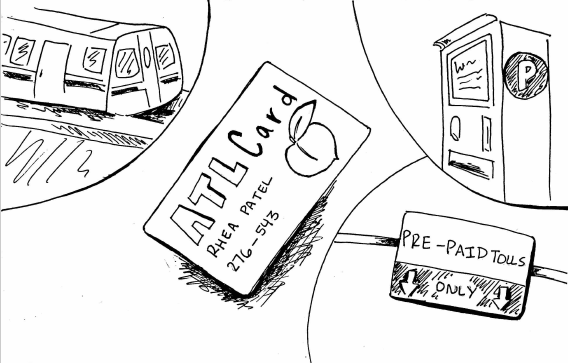 ATL Card
RHEA PATEL
276-543
P
PRE-PAID TOLLS
ONLY